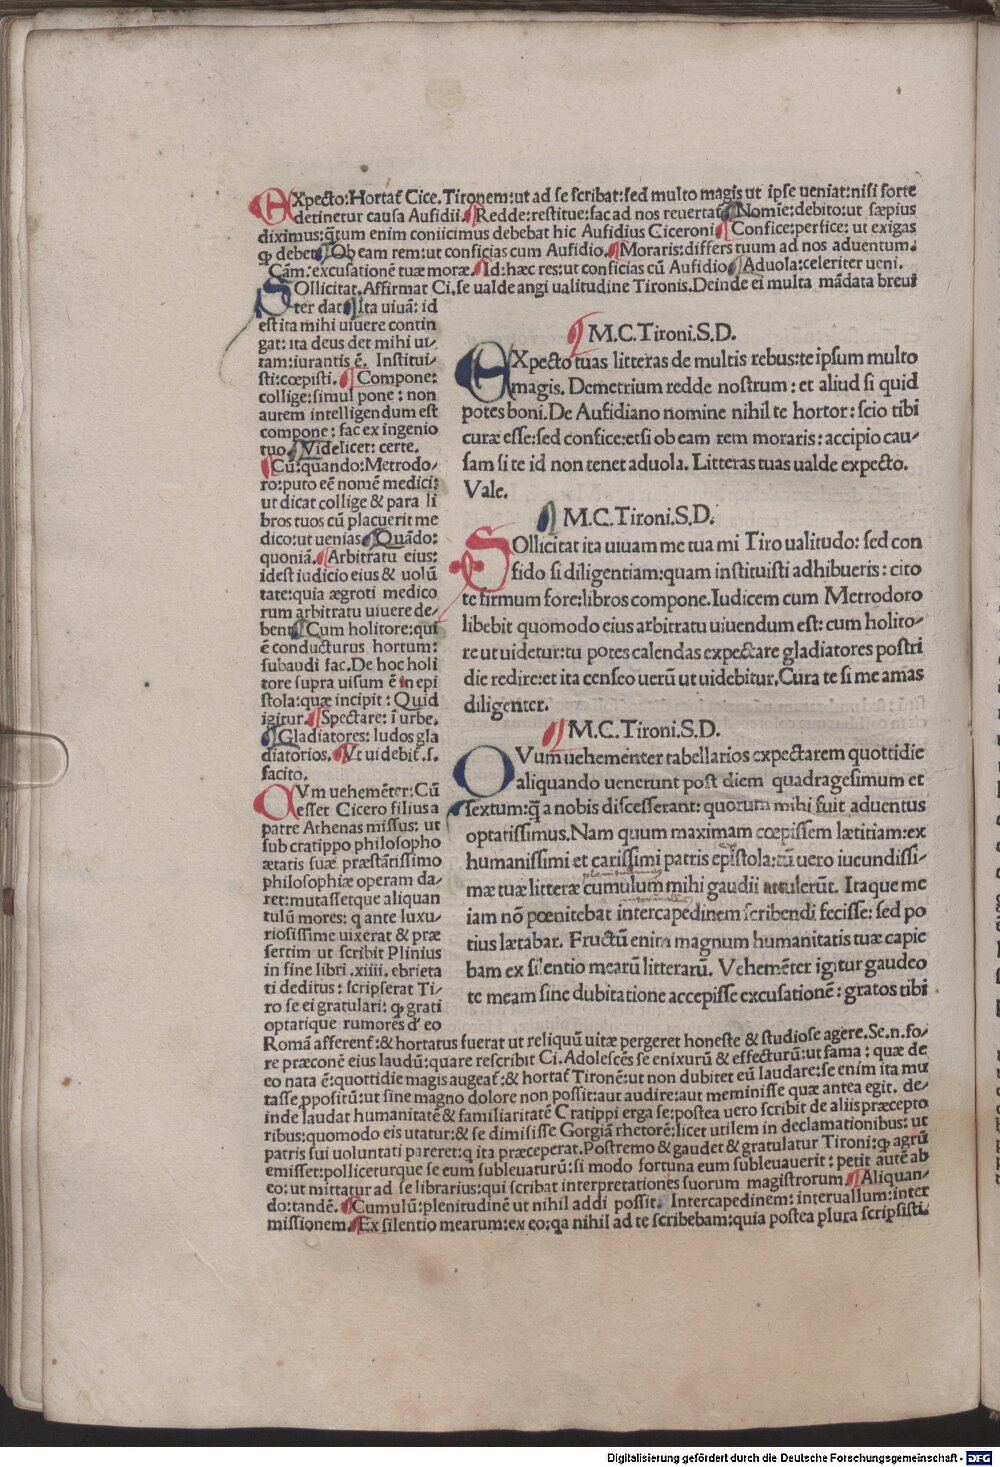 EXpecto:Hortat̃ Cice.Tironem:ut ad se scribat:sed multo magis ut ipse ueniat:nisi forte
detinetur causa Aufidii.¶Redde:restitue:fac ad nos reuertat̃.¶Nomīe:debito:ut sæpius
diximus:q̃tum enim coniicimus debebat hic Aufidius Ciceroni.¶Confice:perfice: ut exigas
ꝙ debet.¶Ob eam rem:ut conficias cum Aufidio.¶Moraris:differs tuum ad nos aduentum.
Cām:excusationē tuæ moræ.¶Id:hæc res:ut conficias cū Aufidio.¶Aduola:celeriter ueni.
SOllicitat.Affirmat Ci.se ualde angi ualitudine Tironis.Deinde ei multa mādata breui
ter dat.¶Ita uiuā: id
est ita mihi uiuere contin
gat: ita deus det mihi ui-
tam:iurantis ē. Institui-
sti:cœpisti.¶Compone:
collige:simul pone: non
autem intelligendum est
compone: fac ex ingenio
tuo.¶Videlicet: certe.
¶Cū:quando:Metrodo-
ro:puto eē nomē medici:
ut dicat collige & para li
bros tuos cū placuerit me
dico:ut uenias.¶Quādo:
quoniā.¶Arbitratu eius:
idest iudicio eius & uolū
tate:quia ægroti medico
rum arbitratu uiuere de-
bent.¶Cum holitore:qui
ē conducturus hortum:
subaudi fac.De hoc holi
tore supra uisum ē in epi
stola:quæ incipit: Quid
igitur.¶Spectare: ī urbe.
¶Gladiatores: ludos gla
diatorios.¶Vt uidebit̃.s.
facito.
QVm uehemēter:Cū
esset Cicero filius a
patre Athenas missus: ut
sub cratippo philosopho
ætatis suæ præstātissimo
philosophiæ operam da-
ret:mutassetque aliquan
tulū mores: q ante luxu-
riosissime uixerat & præ
sertim ut scribit Plinius
in fine libri .xiiii. ebrieta
ti deditus: scripserat Ti-
ro se ei gratulari: ꝙ grati
optatique rumores d' eo
¶M.C.Tironi.S.D.
EXpecto tuas litteras de multis rebus:te ipsum multo
magis. Demetrium redde nostrum: et aliud si quid
potes boni.De Aufidiano nomine nihil te hortor: scio tibi
curæ esse:sed confice:etsi ob eam rem moraris: accipio cau-
sam si te id non tenet aduola. Litteras tuas ualde expecto.
Vale.
¶M.C.Tironi.S.D.
SOllicitat ita uiuam me tua mi Tiro ualitudo: sed con
fido si diligentiam:quam instituisti adhibueris: cito
te firmum fore:libros compone.Iudicem cum Metrodoro
libebit quomodo eius arbitratu uiuendum est: cum holito-
re ut uidetur:tu potes calendas expectare gladiatores postri
die redire:et ita censeo uerū ut uidebitur.Cura te si me amas
diligenter.
¶M.C.Tironi.S.D.
QVum uehementer tabellarios expectarem quottidie
aliquando uenerunt post diem quadragesimum et
sextum:q̃ a nobis discesserant: quorum mihi fuit aduentus
optatissimus.Nam quum maximam cœpissem lætitiam:ex
humanissimi et carissimi patris epistola:tū uero iucundissi-
mæ tuæ litteræ cumulum mihi gaudii attulerūt. Itaque me
iam nō pœnitebat intercapedinem scribendi fecisse: sed po
tius lætabar. Fructū enim magnum humanitatis tuæ capie
bam ex silentio mearū litterarū. Vehemēter igitur gaudeo
te meam sine dubitatione accepisse excusationē: gratos tibi
Romā afferent̃:& hortatus fuerat ut reliquū uitæ pergeret honeste & studiose agere.Se.n.fo-
re præconē eius laudū:quare rescribit Ci.Adolescēs se enixurū & effecturū:ut fama: quæ de
eo nata ē:quottidie magis augeat̃:& hortat̃ Tironē:ut non dubitet eū laudare:se enim ita mu
tasse ꝓpositū:ut sine magno dolore non possit:aut audire:aut meminisse quæ antea egit. de-
inde laudat humanitatē & familiaritatē Cratippi erga se:postea uero scribit de aliis præcepto
ribus:quomodo eis utatur:& se dimisisse Gorgiā rhetorē:licet utilem in declamationibus: ut
patris sui uoluntati pareret:q ita præceperat.Postremo & gaudet & gratulatur Tironi:ꝙ agrū
emisset:polliceturque se eum subleuaturū:si modo fortuna eum subleuauerit: petit autē ab
eo:ut mittatur ad se librarius:qui scribat interpretationes suorum magistrorum.¶Aliquan-
do:tandē.¶Cumulū:plenitudinē ut nihil addi possit. Intercapedinem: interuallum:inter
missionem.¶Ex silentio mearum:ex eo:qa nihil ad te scribebam:quia postea plura scripsisti.
Digitalisierung gefördert durch die Deutsche Forschungsgemeinschaft - DFG